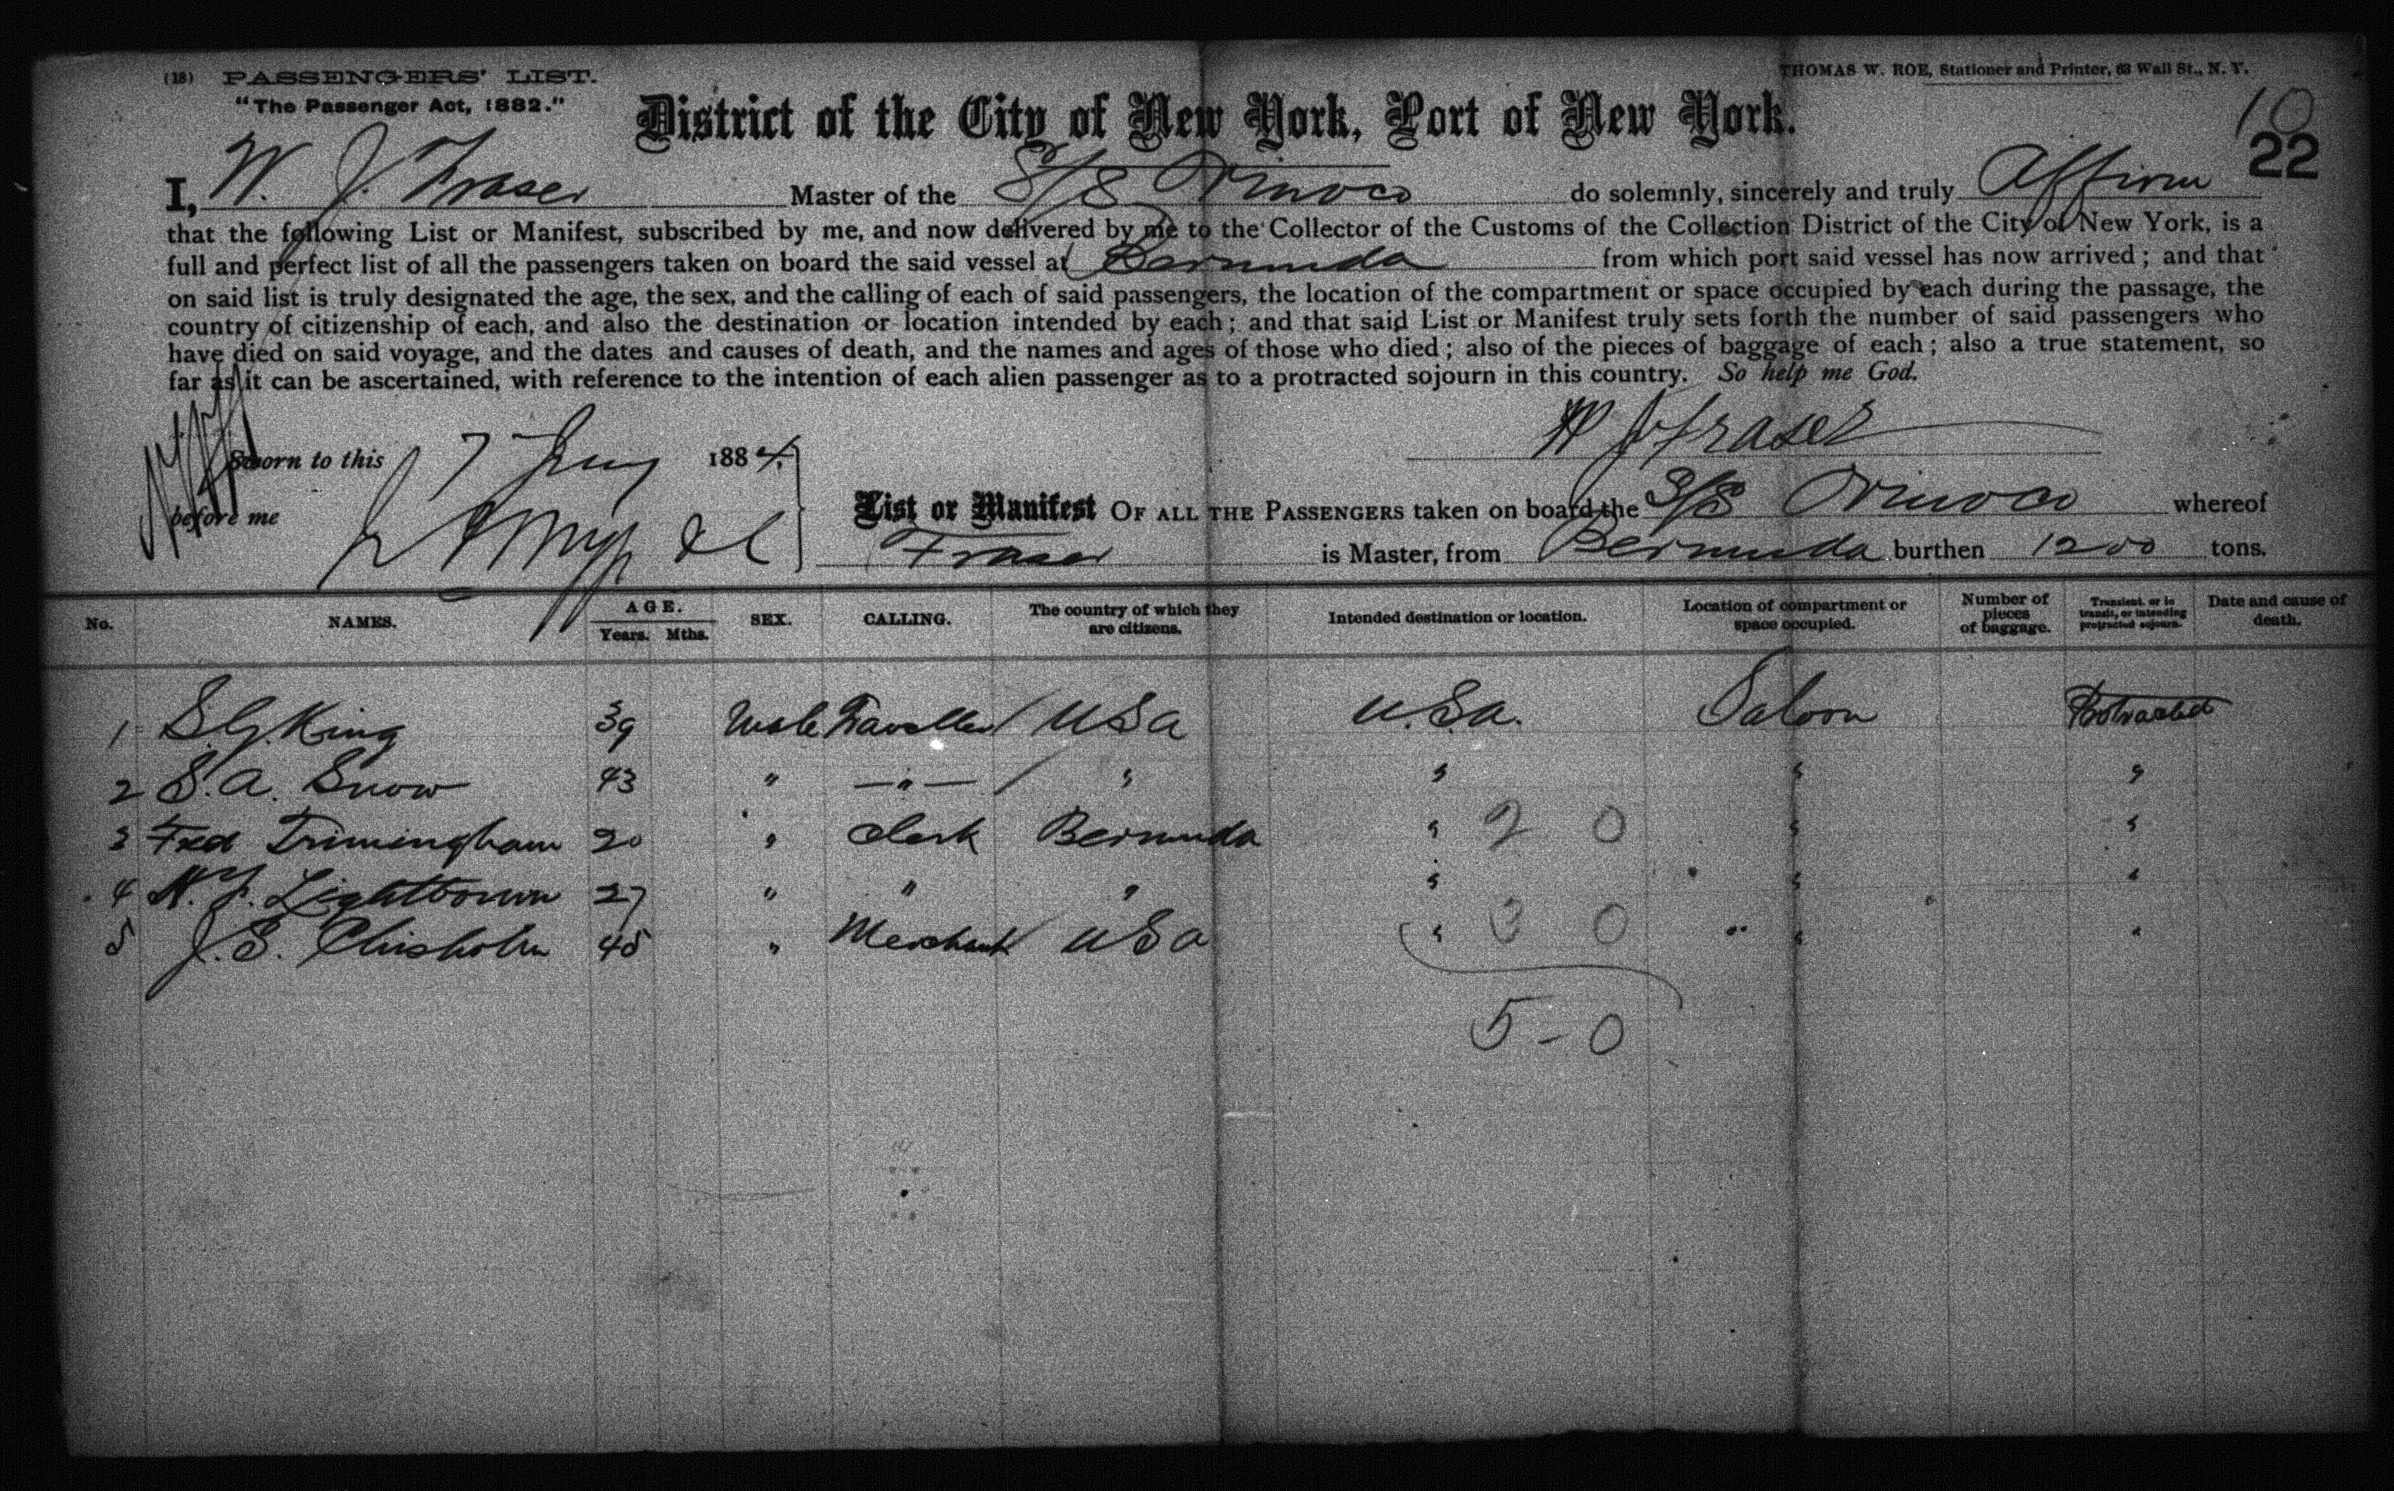 (18) PASSENGERS' LIST.
THOMAS W. ROE, Stationer and Printer, 63 Wall St., N. Y.
"The Passenger Act, 1882."
District of the City of New York, Port of New York.
10
22
I, W. J. Fraser Master of the S/S Orinoco do solemnly, sincerely and truly Affirm
that the following List or Manifest, subscribed by me, and now delivered by me to the Collector of the Customs of the Collection District of the City of New York, is a
full and perfect list of all the passengers taken on board the said vessel at Bermuda from which port said vessel has now arrived; and that
on said list is truly designated the age, the sex, and the calling of each of said passengers, the location of the compartment or space occupied by each during the passage, the
country of citizenship of each, and also the destination or location intended by each; and that said List or Manifest truly sets forth the number of said passengers who
have died on said voyage, and the dates and causes of death, and the names and ages of those who died; also of the pieces of baggage of each; also a true statement, so
far as it can be ascertained, with reference to the intention of each alien passenger as to a protracted sojourn in this country. So help me God.
W J Fraser
Sworn to this 7 1884
before me
List or Manifest OF ALL THE PASSENGERS taken on board the S/S Orinoco whereof
Fraser is Master, from Bermuda burthen 1200 tons.
No. NAMES. AGE. Years. Mths. SEX. CALLING. The country of which they are citizens. Intended destination or location. Location of compartment or space occupied. Number of pieces of baggage. Transient, or in transit, or intending protracted sojourn. Date and cause of death.
1 S. G. King 39 Male Traveller / USA U.S.A. Saloon Protracted
2 S. A. Snow 43 " — " — / " " " "
3 Fred Trimingham 20 " Clerk Bermuda " 2 0 " "
4 Lightbourn 27 " " " " " "
5 J. S. Chisholm 45 " Merchant / USA " 3 0 " "
5 - 0